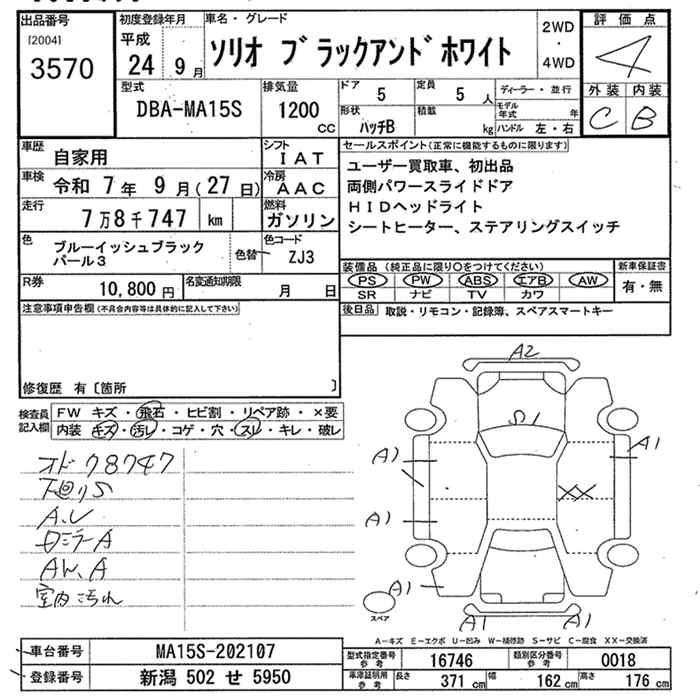 出品番号
[2004]
3570
初度登録年月
平成
24 9 月
車名・グレード
ソリオ ブラックアンドホワイト
2WD
・
4WD
評価点
4
外装 内装
C B
型式
DBA-MA15S
排気量
1200
cc
ドア
5
定員
5 人
形状
ハッチB
積載
kg
ディーラー・並行
モデル年式 年
ハンドル 左・右
車歴
自家用
シフト
IAT
車検
令和 7 年 9 月 (27 日)
冷房
AAC
走行
7 万 8 千 747 km
燃料
ガソリン
色
ブルーイッシュブラック
パール3
色替
色コード
ZJ3
R券
10,800 円
名変通知期限
月 日
セールスポイント(正常に機能するものに限ります)
ユーザー買取車、初出品
両側パワースライドドア
HIDヘッドライト
シートヒーター、ステアリングスイッチ
装備品(純正品に限り○をつけてください)
PS PW ABS エアB AW
SR ナビ TV カワ
新車保証書
有・無
後日品 取説・リモコン・記録簿、スペアスマートキー
注意事項申告欄(不具合内容等は具体的に記入して下さい)
修復歴 有〔箇所 〕
検査員
記入欄
FW キズ・飛石・ヒビ割・リペア跡・×要
内装 キズ・汚レ・コゲ・穴・スレ・キレ・破レ
オド78747
下回りS
A.U
ロミラーA
AW.A
室内汚れ
A2
S1
A1
A1
XX
A1
A1
A1
A1
スペア
A−キズ E−エクボ U−凹み W−補修跡 S−サビ C−腐食 XX−交換済
車台番号
MA15S-202107
登録番号
新潟 502 せ 5950
型式指定番号
参考
16746
類別区分番号
参考
0018
車庫証明用
参考
長さ
371 cm
幅
162 cm
高さ
176 cm